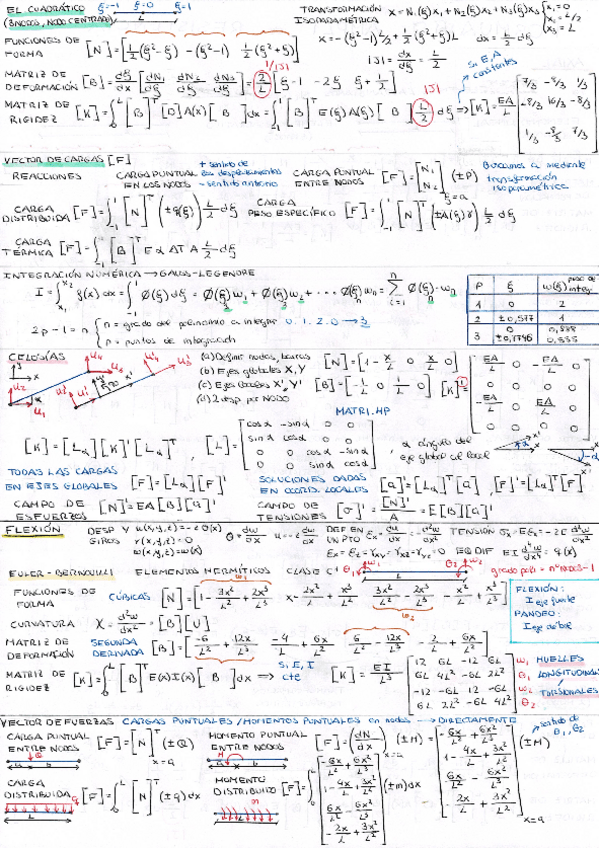 EL CUADRÁTICO ξ=-1 ξ=0 ξ=1
(3 NODOS, NODO CENTRADO) L
TRANSFORMACIÓN ISOPARAMÉTRICA x = N₁(ξ)x₁ + N₂(ξ)x₂ + N₃(ξ)x₃ { x₁=0 x₂=L/2 x₃=L
FUNCIONES DE FORMA [N] = [1/2(ξ²-ξ) -(ξ²-1) 1/2(ξ²+ξ)]
x = -(ξ²-1)L/2 + 1/2(ξ²+ξ)L dx = L/2 dξ
|J| = dx/dξ = L/2
MATRIZ DE DEFORMACIÓN [B] = dξ/dx [dN₁/dξ dN₂/dξ dN₃/dξ] = 2/L [ξ-1/2 -2ξ ξ+1/2] 1/|J|
Si E, A constantes
MATRIZ DE RIGIDEZ [K] = ∫₀ᴸ [B]ᵀ [D] A(x) [B] dx = ∫₋₁¹ [B]ᵀ E(ξ) A(ξ) [B] L/2 dξ ⇒ [K] = EA/L |J|
7/3 -8/3 1/3
-8/3 16/3 -8/3
1/3 -8/3 7/3
VECTOR DE CARGAS [F]
REACCIONES CARGA PUNTUAL EN LOS NODOS + sentido de los desplazamientos - sentido contrario
CARGA PUNTUAL ENTRE NODOS [F] = [N₁ N₂ ...] ξ=a (±P) Buscamos a mediante transformación isoparamétrica
CARGA DISTRIBUIDA [F] = ∫₋₁¹ [N]ᵀ (±q(ξ)) L/2 dξ
CARGA PESO ESPECÍFICO [F] = ∫₋₁¹ [N]ᵀ (±A(ξ)γ) L/2 dξ
CARGA TÉRMICA [F] = ∫₋₁¹ [B]ᵀ E α ΔT A L/2 dξ
INTEGRACIÓN NUMÉRICA → GAUSS-LEGENDRE
I = ∫ₓ₁ˣ² g(x) dx = ∫₋₁¹ Ø(ξ) dξ = Ø(ξ₁)w₁ + Ø(ξ₂)w₂ + ... Ø(ξₙ)wₙ = Σᵢ₌₁ⁿ Ø(ξₙ)·wₙ
2p-1 = n { n = grado del polinomio a integrar 0, 1, 2, 0 → 3
p = puntos de integración
P ξ w(ξ) peso de integ.
1 0 2
2 ±0,577 1
3 0 0,888
±0,7746 0,555
CELOSÍAS
(a) Definir nodos, barras
(b) Ejes globales X, Y
(c) Ejes locales X', Y'
(d) 2 desp por NODO
[N] = [1-x/L 0 x/L 0]
[B] = [-1/L 0 1/L 0]
[K]' =
EA/L 0 -EA/L 0
0 0 0 0
-EA/L 0 EA/L 0
0 0 0 0
MATRI.HP
[K] = [Lα][K]'[Lα]ᵀ
[L] =
cosα -sinα 0 0
sinα cosα 0 0
0 0 cosα -sinα
0 0 sinα cosα
α ángulo del eje global al local
TODAS LAS CARGAS EN EJES GLOBALES [F] = [Lα][F]'
SOLUCIONES DADAS EN COORD. LOCALES [a]' = [Lα]ᵀ[a] , [F]' = [Lα]ᵀ[F]
CAMPO DE ESFUERZOS [N]' = EA[B][a]'
CAMPO DE TENSIONES [σ]' = [N]'/A = E[B][a]'
FLEXIÓN DESP Y GIROS u(x,y,z) = -zθ(x)
v(x,y,z) = 0
w(x,y,z) = w(x)
θ = dw/dx u = -z dw/dx
DEF EN UN PTO εx = du/dx = -z d²w/dx²
TENSIÓN σx = Eεx = -zE d²w/dx²
εy = εz = γxy = γxz = γyz = 0 EQ DIF EI d⁴w/dx⁴ = q(x)
EULER-BERNOUILLI ELEMENTOS HERMÍTICOS CLASE C1 w₁ θ₁ θ₂ w₂ L grado poli = nºNODOS-1
FUNCIONES DE FORMA CÚBICAS [N] = [1-3x²/L²+2x³/L³ x-2x²/L+x³/L² 3x²/L²-2x³/L³ -x²/L+x³/L²]
FLEXIÓN: I eje fuerte
PANDEO: I eje débil
CURVATURA χ = d²w/dx² = [B][U]
MATRIZ DE DEFORMACIÓN SEGUNDA DERIVADA [B] = [-6/L²+12x/L³ -4/L+6x/L² 6/L²-12x/L³ -2/L+6x/L²]
MATRIZ DE RIGIDEZ [K] = ∫₀ᴸ [B]ᵀ E(x)I(x) [B] dx ⇒ Si E, I cte [K] = EI/L³
12 6L -12 6L w₁
6L 4L² -6L 2L² θ₁
-12 -6L 12 -6L w₂
6L 2L² -6L 4L² θ₂
MUELLES LONGITUDINALES Y TORSIONALES
VECTOR DE FUERZAS CARGAS PUNTUALES/MOMENTOS PUNTUALES en nodos → DIRECTAMENTE
CARGA PUNTUAL ENTRE NODOS [F] = [N]ᵀ x=a (±Q)
MOMENTO PUNTUAL ENTRE NODOS [F] = (dN/dx)ᵀ x=a (±M) =
-6x/L²+6x²/L³
1-4x/L+3x²/L²
6x/L²-6x²/L³
-2x/L+3x²/L²
x=a (±M) sentido de θ₁, θ₂
CARGA DISTRIBUIDA [F] = ∫₀ᴸ [N]ᵀ (±q) dx
MOMENTO DISTRIBUIDO [F] = ∫₀ᴸ
-6x/L²+6x²/L³
1-4x/L+3x²/L²
6x/L²-6x²/L³
-2x/L+3x²/L²
(±m) dx